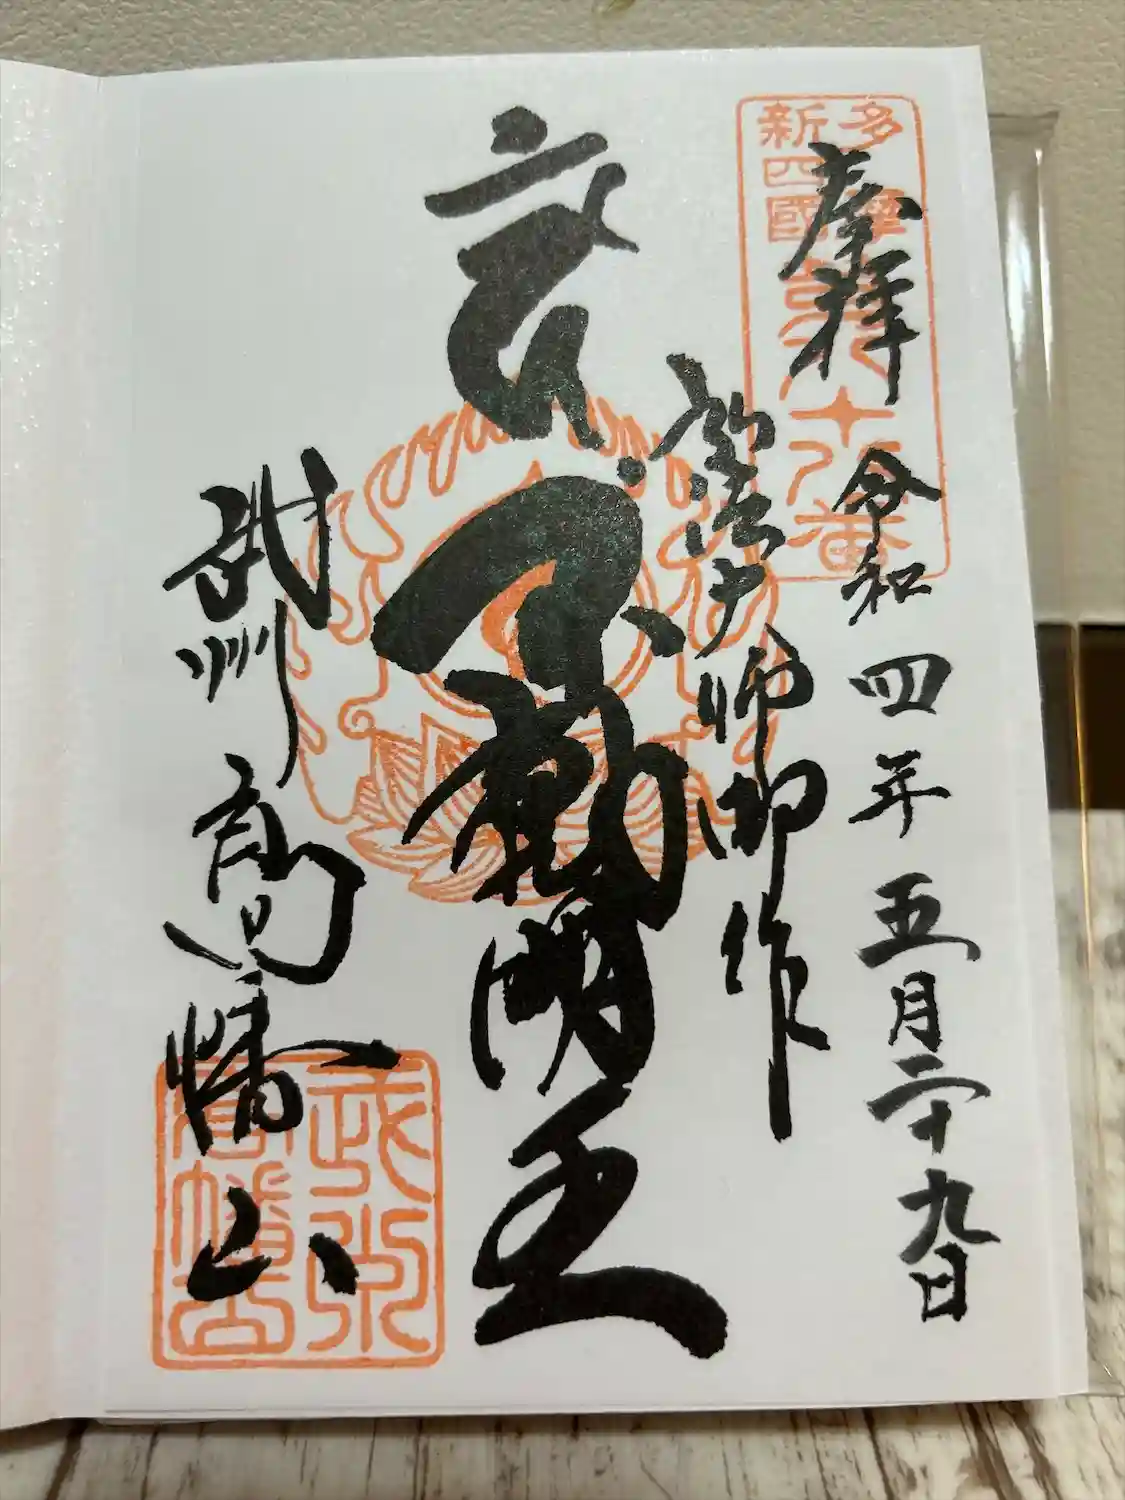 多摩
新四國
第八十八番
奉拝
令和四年五月二十九日
弘法大師御作
不動明王
武州高幡山
武州
高幡山